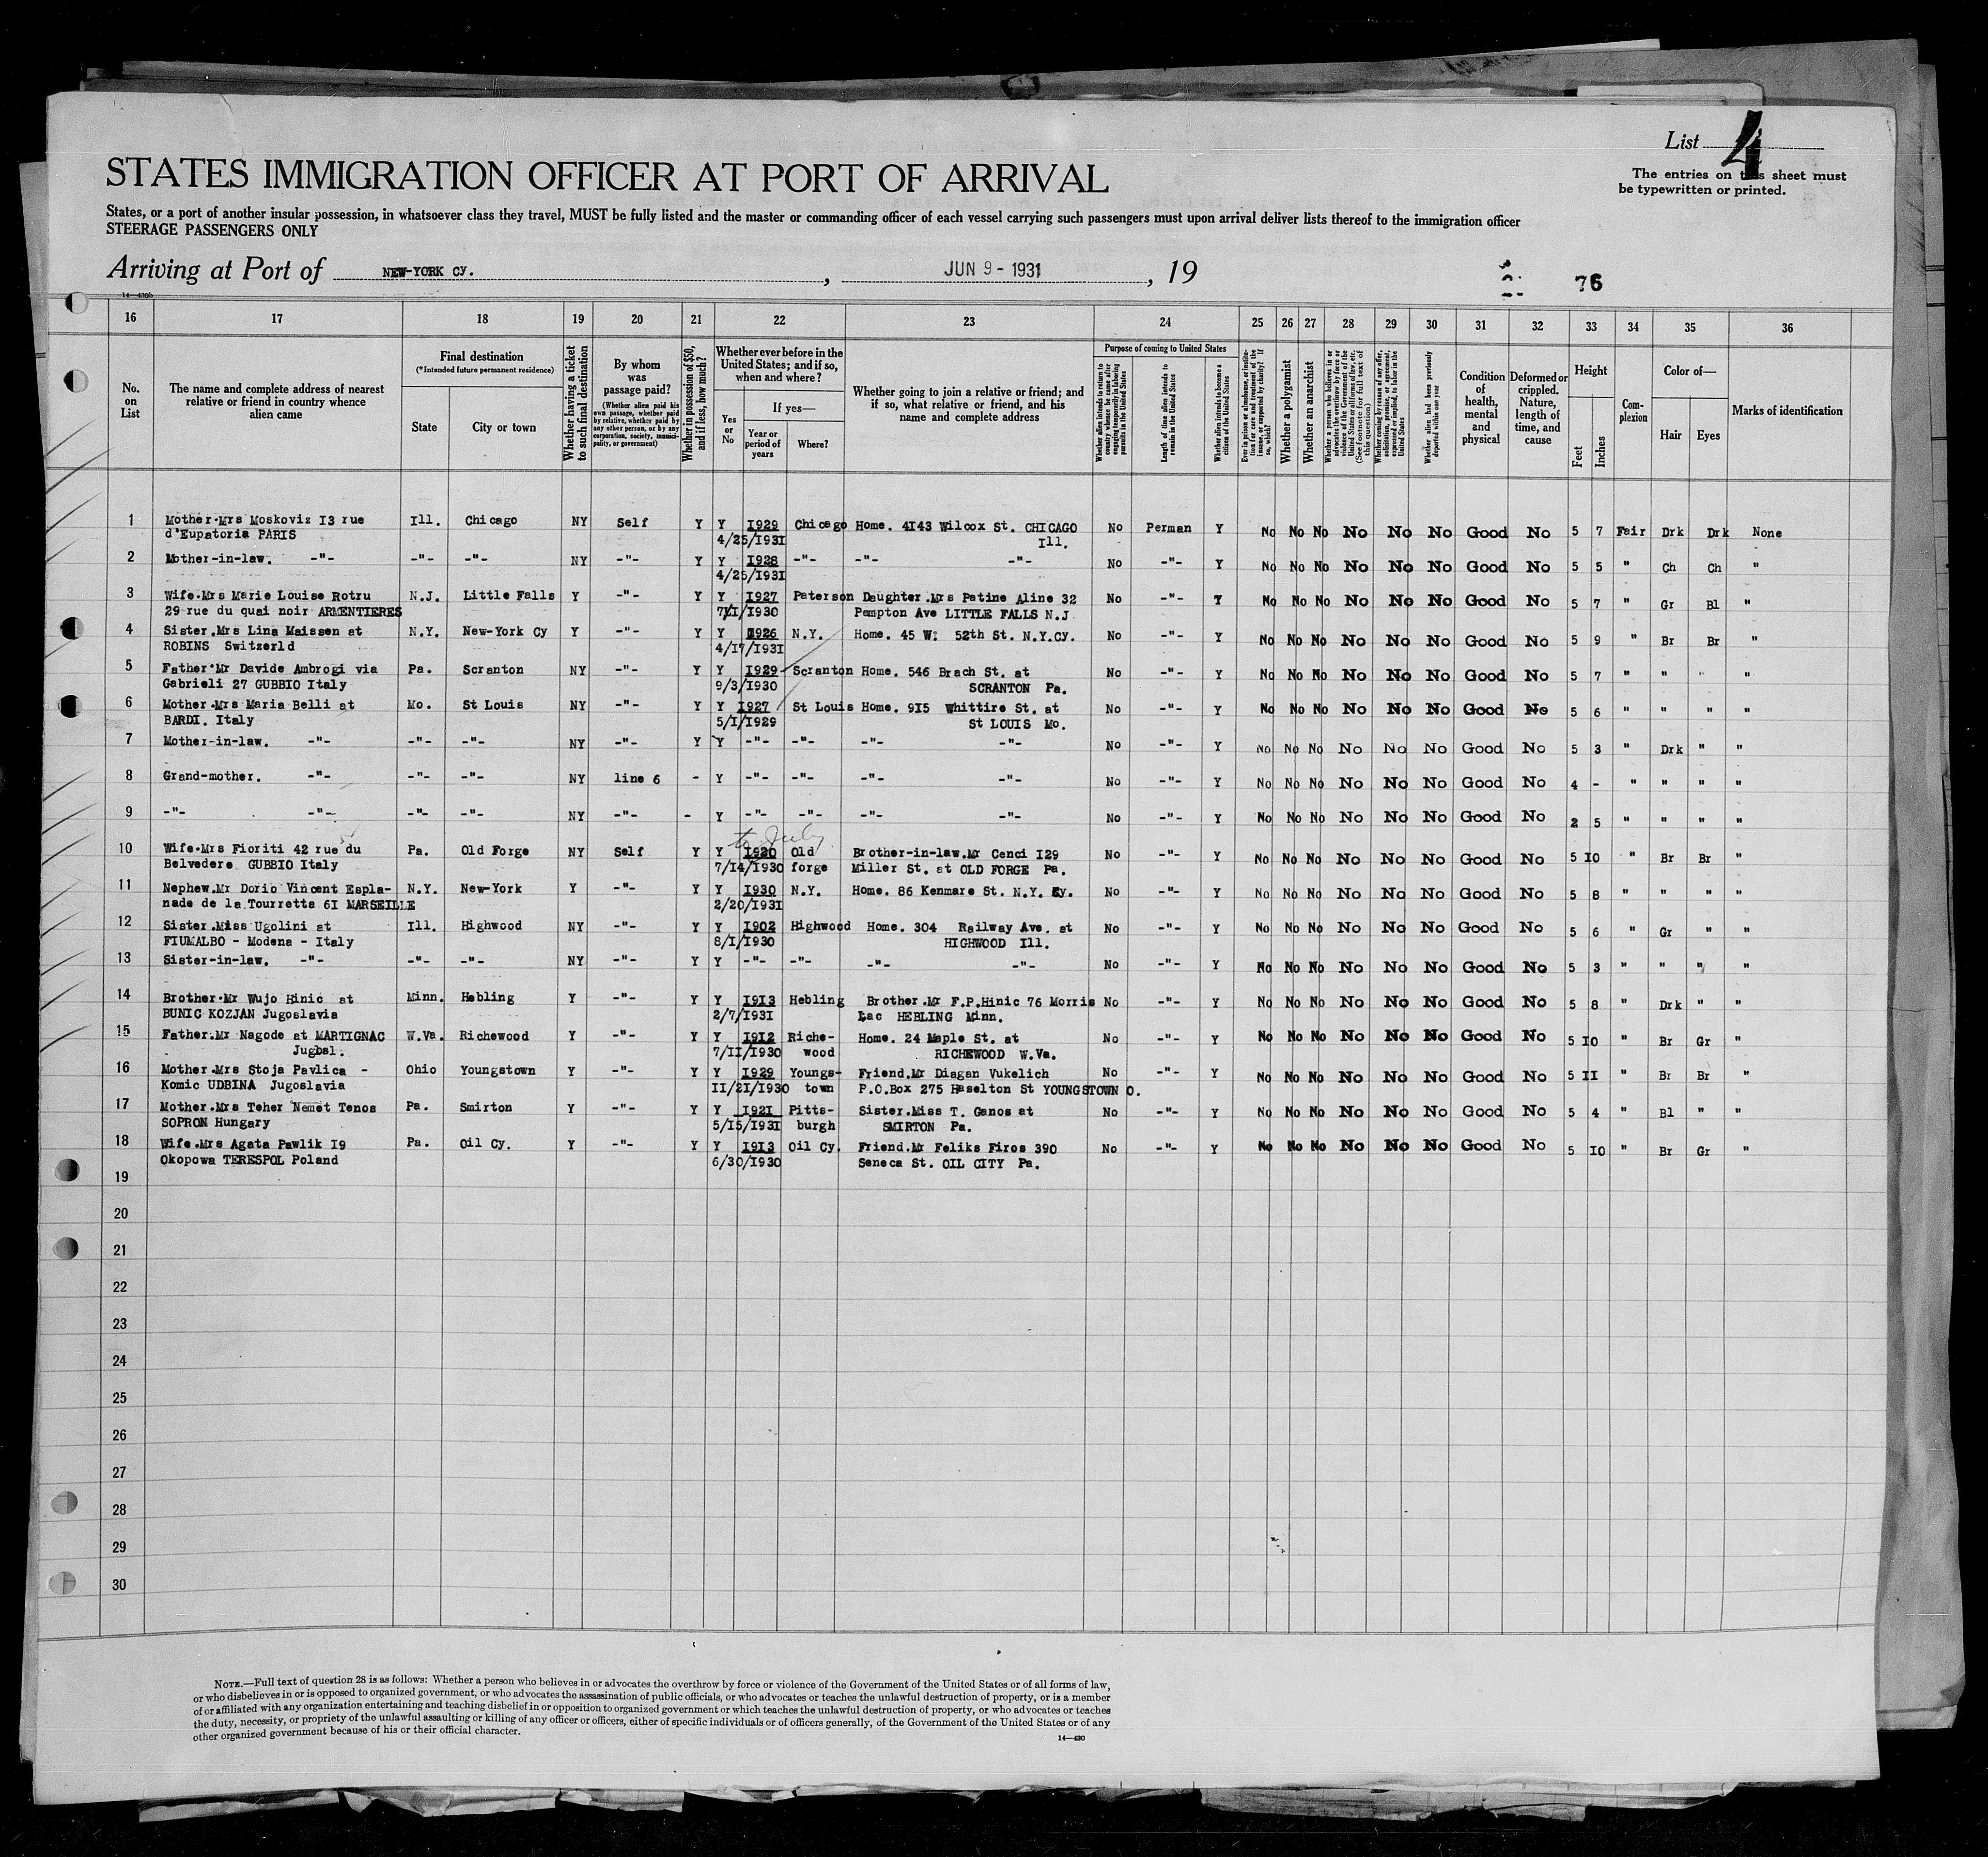 List 4
The entries on this sheet must
be typewritten or printed.
STATES IMMIGRATION OFFICER AT PORT OF ARRIVAL
States, or a port of another insular possession, in whatsoever class they travel, MUST be fully listed and the master or commanding officer of each vessel carrying such passengers must upon arrival deliver lists thereof to the immigration officer
STEERAGE PASSENGERS ONLY
Arriving at Port of NEW-YORK Cy. , JUN 9 - 1931 , 19
76
14—430b
16 17 18 19 20 21 22 23 24 25 26 27 28 29 30 31 32 33 34 35 36
No. on List
The name and complete address of nearest relative or friend in country whence alien came
Final destination
(*Intended future permanent residence)
State
City or town
Whether having a ticket to such final destination
By whom was passage paid?
(Whether alien paid his own passage, whether paid by relative, whether paid by any other person, or by any corporation, society, municipality, or government)
Whether in possession of $50, and if less, how much?
Whether ever before in the United States; and if so, when and where?
Yes or No
If yes—
Year or period of years
Where?
Whether going to join a relative or friend; and if so, what relative or friend, and his name and complete address
Purpose of coming to United States
Whether alien intends to return to country whence he came after engaging temporarily in laboring pursuits in the United States
Length of time alien intends to remain in the United States
Whether alien intends to become a citizen of the United States
Ever in prison or almshouse, or institution for care and treatment of the insane, or supported by charity? If so, which?
Whether a polygamist
Whether an anarchist
Whether a person who believes in or advocates the overthrow by force or violence of the Government of the United States or all forms of law, etc. (See footnote for full text of this question)
Whether coming by reason of any offer, solicitation, promise, or agreement, expressed or implied, to labor in the United States
Whether alien had been previously deported within one year
Condition of health, mental and physical
Deformed or crippled. Nature, length of time, and cause
Height
Feet
Inches
Complexion
Color of—
Hair
Eyes
Marks of identification
1 Mother.Mrs Moskoviz I3 rue Ill. Chicago NY Self Y Y I929 Chicago Home. 4I43 Wilcox St. CHICAGO No Perman Y No No No No No No Good No 5 7 Fair Drk Drk None
d'Eupatoria PARIS 4/25/I93I Ill.
2 Mother-in-law. -"- -"- -"- NY -"- Y Y I928 -"- -"- -"- No -"- Y No No No No No No Good No 5 5 " Ch Ch "
4/25/I93I
3 Wife.Mrs Marie Louise Rotru N.J. Little Falls Y -"- Y Y I927 Paterson Daughter.Mrs Patine Aline 32 No -"- Y No No No No No No Good No 5 7 " Gr Bl "
29 rue du quai noir ARMENTIERES /I930 Pampton Ave LITTLE FALLS N.J
4 Sister.Mrs Lina Maissen at N.Y. New-York Cy Y -"- Y Y I926 N.Y. Home. 45 W. 52th St. N.Y.Cy. No -"- Y No No No No No No Good No 5 9 " Br Br "
ROBINS Switzerld 4/I7/I93I
5 Father.Mr Davide Ambrogi via Pa. Scranton NY -"- Y Y I929 Scranton Home. 546 Brach St. at No -"- Y No No No No No No Good No 5 7 " " " "
Gabrieli 27 GUBBIO Italy 9/3/I930 SCRANTON Pa.
6 Mother.Mrs Maria Belli at Mo. St Louis NY -"- Y Y I927 St Louis Home. 9I5 Whittire St. at No -"- Y No No No No No No Good No 5 6 " " " "
BARDI. Italy 5/I/I929 St LOUIS Mo.
7 Mother-in-law. -"- -"- -"- NY -"- Y Y -"- -"- -"- -"- No -"- Y No No No No No No Good No 5 3 " Drk " "
8 Grand-mother. -"- -"- -"- NY line 6 - Y -"- -"- -"- -"- No -"- Y No No No No No No Good No 4 - " " " "
9 -"- -"- -"- -"- NY -"- - Y -"- -"- -"- -"- No -"- Y No No No No No No Good No 2 5 " " " "
to July
10 Wife.Mrs Fioriti 42 rue du Pa. Old Forge NY Self Y Y I920 Old Brother-in-law.Mr Cenci I29 No -"- Y No No No No No No Good No 5 I0 " Br Br "
Belvedere GUBBIO Italy 7/I4/I930 forge Miller St. at OLD FORGE Pa.
11 Nephew.Mr Dorio Vincent Espla- N.Y. New-York Y -"- Y Y I930 N.Y. Home. 86 Kenmare St. N.Y. Cy. No -"- Y No No No No No No Good No 5 8 " " " "
nade de la Tourretta 6I MARSEILLE 2/20/I93I
12 Sister.Miss Ugolini at Ill. Highwood NY -"- Y Y I902 Highwood Home. 304 Railway Ave. at No -"- Y No No No No No No Good No 5 6 " Gr " "
FIUMALBO - Modena - Italy 8/I/I930 HIGHWOOD Ill.
13 Sister-in-law. -"- -"- -"- NY -"- Y Y -"- -"- -"- -"- No -"- Y No No No No No No Good No 5 3 " " " "
14 Brother.Mr Wujo Hinic at Minn. Hebling Y -"- Y Y I9I3 Hebling Brother.Mr F.P.Hinic 76 Morris No -"- Y No No No No No No Good No 5 8 " Drk " "
BUNIC KOZJAN Jugoslavia 2/7/I93I Lac HEBLING Minn.
15 Father.Mr Nagode at MARTIGNAC W.Va. Richewood Y -"- Y Y I9I2 Riche- Home. 24 Maple St. at No -"- Y No No No No No No Good No 5 I0 " Br Gr "
Jugbsl. 7/II/I930 wood RICHEWOOD W.Va.
16 Mother.Mrs Stoja Pavlica - Ohio Youngstown Y -"- Y Y I929 Youngs- Friend.Mr Diagan Vukelich No -"- Y No No No No No No Good No 5 II " Br Br "
Komic UDBINA Jugoslavia II/2I/I930 town P.O.Box 275 Haselton St YOUNGSTOWN O.
17 Mother.Mrs Teher Nemet Tenos Pa. Smirton Y -"- Y Y I92I Pitts- Sister.Miss T. Ganos at No -"- Y No No No No No No Good No 5 4 " Bl " "
SOPRON Hungary 5/I5/I93I burgh SMIRTON Pa.
18 Wife.Mrs Agata Pawlik I9 Pa. Oil Cy. Y -"- Y Y I9I3 Oil Cy. Friend.Mr Feliks Firos 390 No -"- Y No No No No No No Good No 5 I0 " Br Gr "
Okopowa TERESPOL Poland 6/30/I930 Seneca St. OIL CITY Pa.
19
20
21
22
23
24
25
26
27
28
29
30
NOTE.—Full text of question 28 is as follows: Whether a person who believes in or advocates the overthrow by force or violence of the Government of the United States or of all forms of law,
or who disbelieves in or is opposed to organized government, or who advocates the assassination of public officials, or who advocates or teaches the unlawful destruction of property, or is a member
of or affiliated with any organization entertaining and teaching disbelief in or opposition to organized government or which teaches the unlawful destruction of property, or who advocates or teaches
the duty, necessity, or propriety of the unlawful assaulting or killing of any officer or officers, either of specific individuals or of officers generally, of the Government of the United States or of any
other organized government because of his or their official character.
14—430